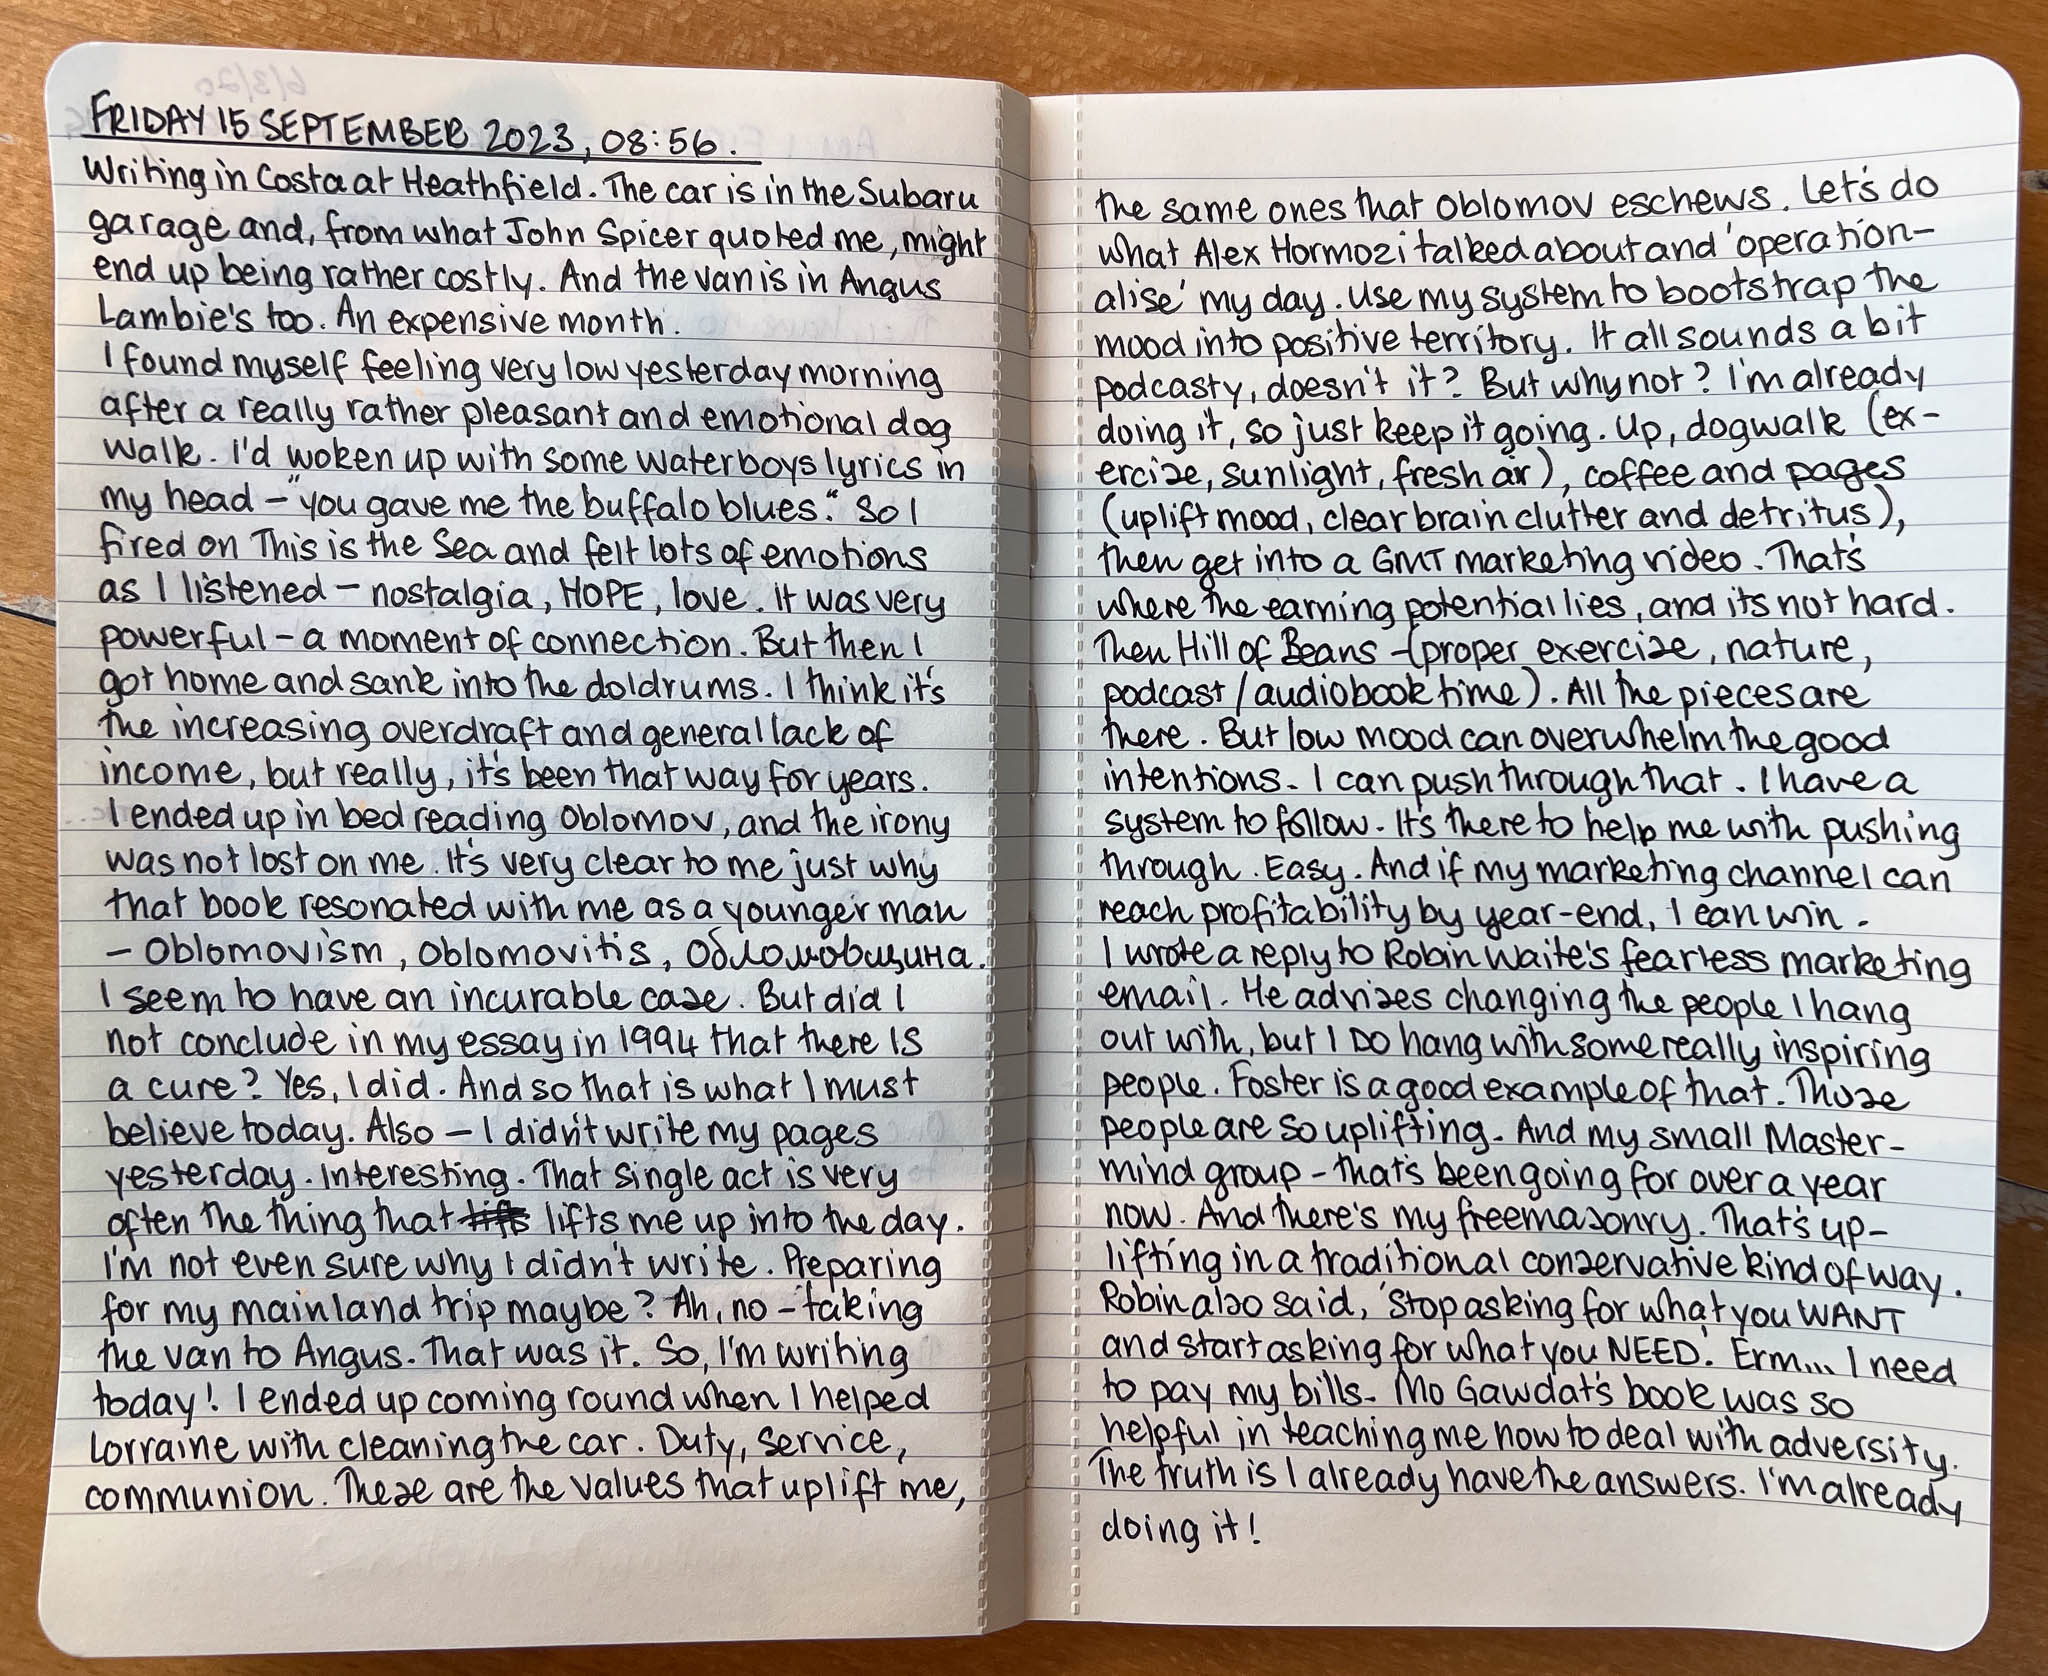 FRIDAY 15 SEPTEMBER 2023, 08:56.
Writing in Costa at Heathfield. The car is in the Subaru
garage and, from what John Spicer quoted me, might
end up being rather costly. And the van is in Angus
Lambie's too. An expensive month.
I found myself feeling very low yesterday morning
after a really rather pleasant and emotional dog
walk. I'd woken up with some Waterboys lyrics in
my head – "you gave me the buffalo blues." So I
fired on This is the Sea and felt lots of emotions
as I listened – nostalgia, HOPE, love. It was very
powerful – a moment of connection. But then I
got home and sank into the doldrums. I think it's
the increasing overdraft and general lack of
income, but really, it's been that way for years.
I ended up in bed reading Oblomov, and the irony
was not lost on me. It's very clear to me just why
that book resonated with me as a younger man
– Oblomovism, Oblomovitis, Обломовщина.
I seem to have an incurable case. But did I
not conclude in my essay in 1994 that there IS
a cure? Yes, I did. And so that is what I must
believe today. Also – I didn't write my pages
yesterday. Interesting. That single act is very
often the thing that lifts me up into the day.
I'm not even sure why I didn't write. Preparing
for my mainland trip maybe? Ah, no – taking
the van to Angus. That was it. So, I'm writing
today! I ended up coming round when I helped
Lorraine with cleaning the car. Duty, service,
communion. These are the values that uplift me,
the same ones that Oblomov eschews. Let's do
what Alex Hormozi talked about and 'operation-
alise' my day. Use my system to bootstrap the
mood into positive territory. It all sounds a bit
podcasty, doesn't it? But why not? I'm already
doing it, so just keep it going. Up, dogwalk (ex-
ercize, sunlight, fresh air), coffee and pages
(uplift mood, clear brain clutter and detritus),
then get into a GMT marketing video. That's
where the earning potential lies, and its not hard.
Then Hill of Beans – (proper exercize, nature,
podcast/audiobook time). All the pieces are
there. But low mood can overwhelm the good
intentions. I can push through that. I have a
system to follow. It's there to help me with pushing
through. Easy. And if my marketing channel can
reach profitability by year-end, I can win.
I wrote a reply to Robin Waite's fearless marketing
email. He advizes changing the people I hang
out with, but I DO hang with some really inspiring
people. Foster is a good example of that. Those
people are so uplifting. And my small Master-
mind group – that's been going for over a year
now. And there's my freemasonry. That's up-
lifting in a traditional conservative kind of way.
Robin also said, 'Stop asking for what you WANT
and start asking for what you NEED.' Erm... I need
to pay my bills. Mo Gawdat's book was so
helpful in teaching me how to deal with adversity.
The truth is I already have the answers. I'm already
doing it!